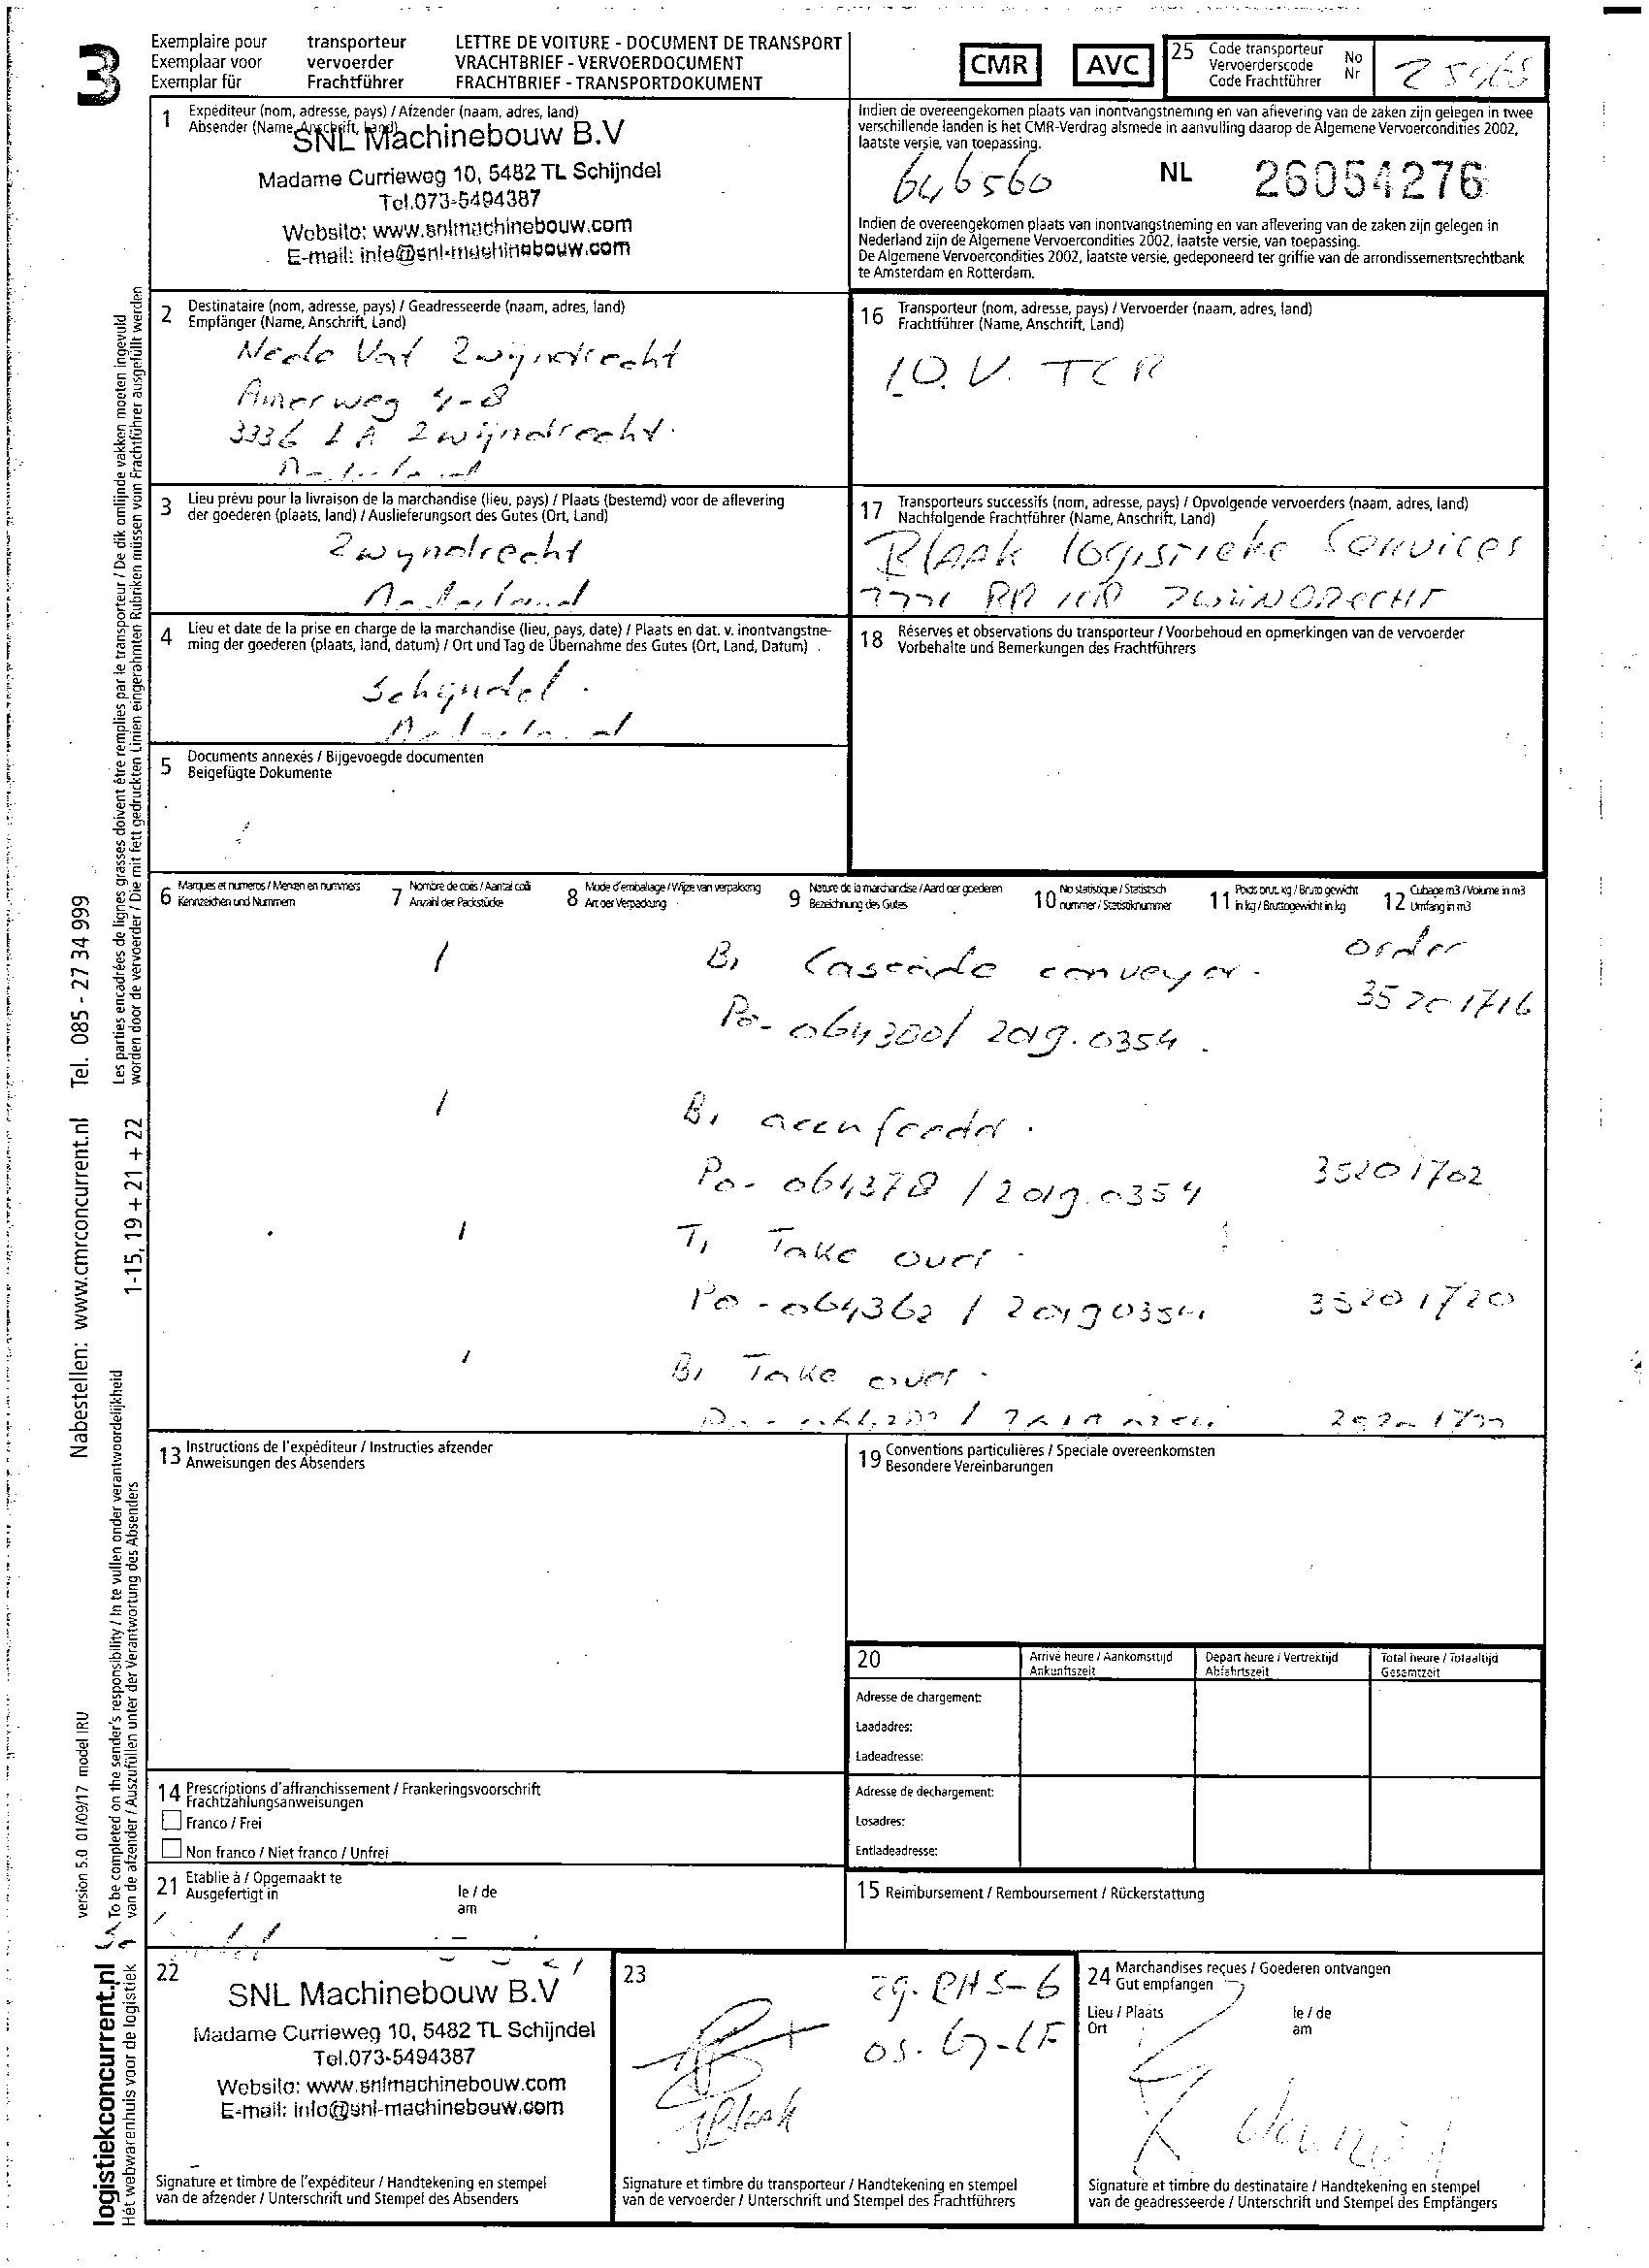 3
Exemplaire pour transporteur LETTRE DE VOITURE - DOCUMENT DE TRANSPORT
Exemplaar voor vervoerder VRACHTBRIEF - VERVOERDOCUMENT
Exemplar für Frachtführer FRACHTBRIEF - TRANSPORTDOKUMENT
CMR AVC
25 Code transporteur
Vervoerderscode
Code Frachtführer
No
Nr
1 Expéditeur (nom, adresse, pays) / Afzender (naam, adres, land)
Absender (Name, Anschrift, Land)
SNL Machinebouw B.V
Madame Currieweg 10, 5482 TL Schijndel
Tel.073-5494387
Website: www.snlmachinebouw.com
E-mail: info@snl-machinebouw.com
Indien de overeengekomen plaats van inontvangstneming en van aflevering van de zaken zijn gelegen in twee
verschillende landen is het CMR-Verdrag alsmede in aanvulling daarop de Algemene Vervoercondities 2002,
laatste versie, van toepassing.
646560
NL 26054276
Indien de overeengekomen plaats van inontvangstneming en van aflevering van de zaken zijn gelegen in
Nederland zijn de Algemene Vervoercondities 2002, laatste versie, van toepassing.
De Algemene Vervoercondities 2002, laatste versie, gedeponeerd ter griffie van de arrondissementsrechtbank
te Amsterdam en Rotterdam.
2 Destinataire (nom, adresse, pays) / Geadresseerde (naam, adres, land)
Empfänger (Name, Anschrift, Land)
Zwijndrecht
Amerweg 4-8
3336 LA Zwijndrecht.
Nederland
16 Transporteur (nom, adresse, pays) / Vervoerder (naam, adres, land)
Frachtführer (Name, Anschrift, Land)
I.O.V. TCR
3 Lieu prévu pour la livraison de la marchandise (lieu, pays) / Plaats (bestemd) voor de aflevering
der goederen (plaats, land) / Auslieferungsort des Gutes (Ort, Land)
Zwyndrecht
Nederland
17 Transporteurs successifs (nom, adresse, pays) / Opvolgende vervoerders (naam, adres, land)
Nachfolgende Frachtführer (Name, Anschrift, Land)
Blaak logistieke Services
ZWIJNDRECHT
4 Lieu et date de la prise en charge de la marchandise (lieu, pays, date) / Plaats en dat. v. inontvangstne-
ming der goederen (plaats, land, datum) / Ort und Tag de Übernahme des Gutes (Ort, Land, Datum)
Schijndel.
Nederland
18 Réserves et observations du transporteur / Voorbehoud en opmerkingen van de vervoerder
Vorbehalte und Bemerkungen des Frachtführers
5 Documents annexés / Bijgevoegde documenten
Beigefügte Dokumente
6 Marques et numeros / Merken en nummers
Kennzeichen und Nummern
7 Nombre de colis / Aantal colli
Anzahl der Packstücke
8 Mode d'emballage / Wijze van verpakking
Art der Verpackung
9 Nature de la marchandise / Aard der goederen
Bezeichnung des Gutes
10 No statistique / Statistisch
nummer / Statistiknummer
11 Poids brut, kg / Bruto gewicht
in kg / Bruttogewicht in kg
12 Cubage m3 / Volume in m3
Umfang in m3
1 B, Cascade conveyor. order
35201716
Po-064300/ 2019.0354.
1 B,
Po-064378 / 2019.0354 35201702
1 T, Take over.
Po-064362 / 20190354 35201720
1 B, Take over.
13 Instructions de l'expéditeur / Instructies afzender
Anweisungen des Absenders
19 Conventions particulières / Speciale overeenkomsten
Besondere Vereinbarungen
20
Arrivé heure / Aankomsttijd
Ankunftszeit
Depart heure / Vertrektijd
Abfahrtszeit
Total heure / Totaaltijd
Gesamtzeit
Adresse de chargement:
Laadadres:
Ladeadresse:
Adresse de dechargement:
Losadres:
Entladeadresse:
14 Prescriptions d'affranchissement / Frankeringsvoorschrift
Frachtzahlungsanweisungen
Franco / Frei
Non franco / Niet franco / Unfrei
21 Etablie à / Opgemaakt te
Ausgefertigt in
le / de
am
15 Reimbursement / Remboursement / Rückerstattung
22
SNL Machinebouw B.V
Madame Currieweg 10, 5482 TL Schijndel
Tel.073-5494387
Website: www.snlmachinebouw.com
E-mail: info@snl-machinebouw.com
Signature et timbre de l'expéditeur / Handtekening en stempel
van de afzender / Unterschrift und Stempel des Absenders
23
Blaak
Signature et timbre du transporteur / Handtekening en stempel
van de vervoerder / Unterschrift und Stempel des Frachtführers
24 Marchandises reçues / Goederen ontvangen
Gut empfangen
Lieu / Plaats
Ort
le / de
am
Signature et timbre du destinataire / Handtekening en stempel
van de geadresseerde / Unterschrift und Stempel des Empfängers
Les parties encadrées de lignes grasses doivent être remplies par le transporteur / De dik omlijnde vakken moeten ingevuld
worden door de vervoerder / Die mit fett gedruckten Linien eingerahmten Rubriken müssen vom Frachtführer ausgefüllt werden
1-15, 19 + 21 + 22
To be completed on the sender's responsibility / In te vullen onder verantwoordelijkheid
van de afzender / Auszufüllen unter der Verantwortung des Absenders
Nabestellen: www.cmrconcurrent.nl Tel. 085 - 27 34 999
version 5.0 01/09/17 model IRU
logistiekconcurrent.nl
Hét webwarenhuis voor de logistiek